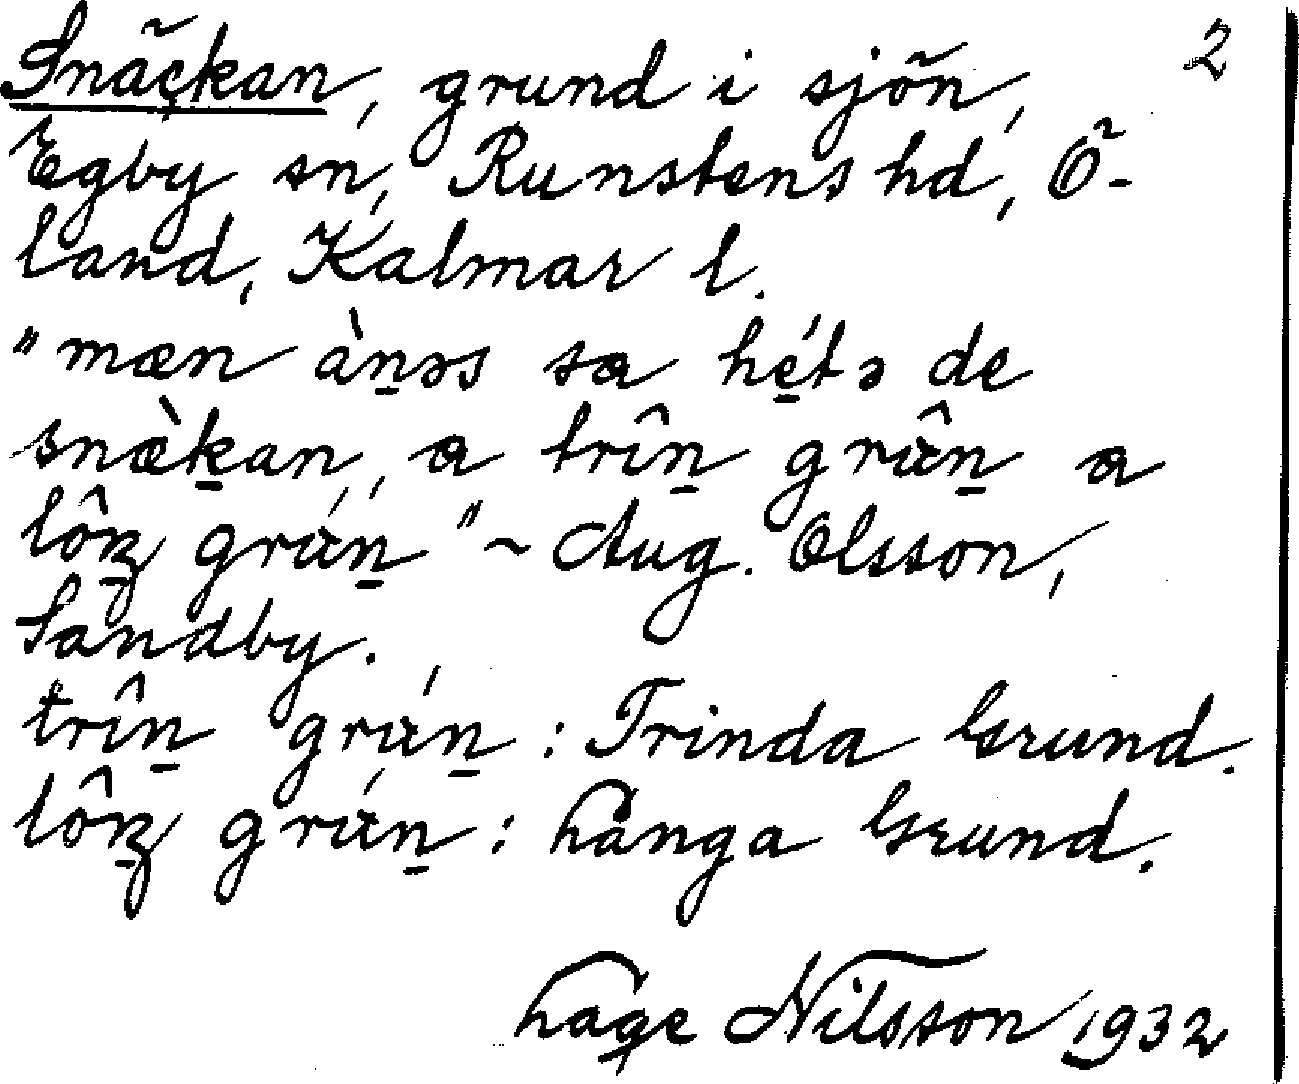 Snäckan, grund i sjön, 2
Egby sn, Runstens hd, Ö-
land, Kalmar l.
"mæn àn̲əs sa hé̲tə de
snæ̀k̲an, a trîn̲ grân̲ a
lôŋ̲ grán̲" ~ Aug. Olsson,
Sandby.
trîn̲ grán̲ : Trinda Grund.
lôŋ̲ grán̲ : Långa Grund.
Lage Nilsson 1932